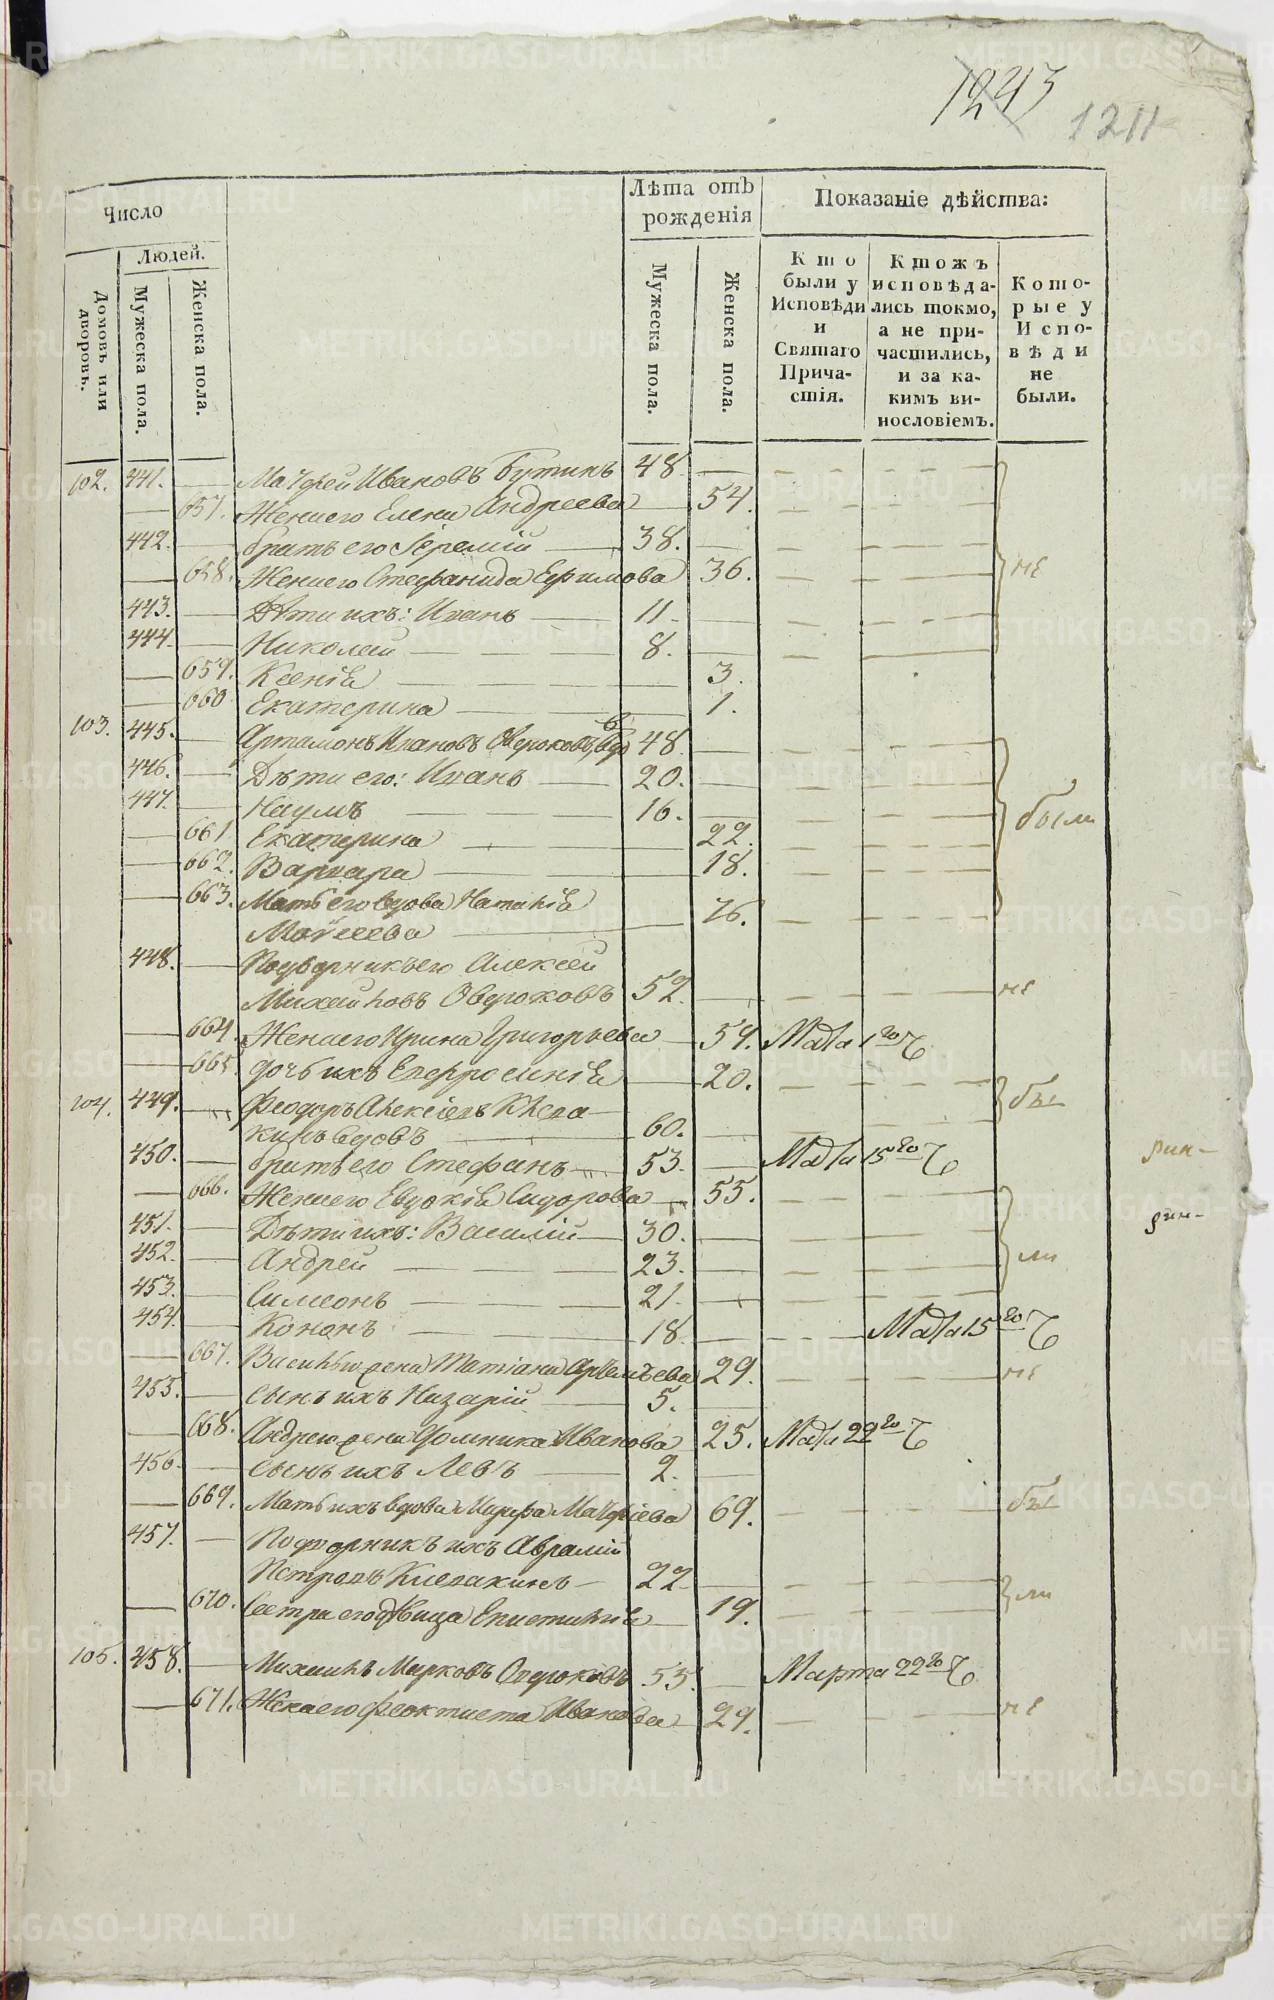 1243
1211
Число
Лѣта отъ рожденія
Показаніе дѣйства:
Людей.
Домовъ или дворовъ.
Мужеска пола.
Женска пола.
Мужеска пола.
Женска пола.
Кто были у Исповѣди и Святаго Причастія.
Ктожъ исповѣдались токмо, а не причастились, и за какимъ винословіемъ.
Которые у Исповѣди не были.
102. 441. Матѳей Ивановъ Бутинъ 48
657. Жена его Елена Андреева 54.
442. братъ его Іеремій 38.
658. Жена его Стефанида Ефимова 36. не
443. Дѣти ихъ: Иванъ 11
444. Николай 8.
659. Ксенія 3.
660 Екатерина 1.
103. 445. Артамонъ Ивановъ Оверковъ, вдо 48
446. Дѣти его: Иванъ 20.
447. Наумъ 16. были
661 Екатерина 22.
662. Варвара 18.
663. Мать его вдова Наталія
Моисеева 76.
448. Подворникъ его Алексей
Михайловъ Оверковъ 52. не
664. Жена его Ирина Григорьева 54. Маія 1го
665. дочь ихъ Епфросинія 20.
104. 449. Феодоръ Алексіевъ Клепа
кинъ вдовъ 60.
450. братъ его Стефанъ 53. Маія 15го
666. Жена его Евдокія Сидорова 55.
451. Дѣти ихъ: Василій 30.
452. Андрей 23. ли
453. Симеонъ 21.
454. Кононъ 18. Маія 15го
667. Васильева жена Татіана Артемьева 29. не
455. Сынъ ихъ Назарій 5.
668. Андреева жена Домника Иванова 25. Маія 22го
456. Сынъ ихъ Левъ 2.
669. Мать ихъ вдова Марфа Матѳіева 69.
457. Подворникъ ихъ Аврамій
Петровъ Клепакинъ 22 ли
670. Сестра его дѣвица Епистимія 19.
105. 458. Михаилъ Марковъ Оверковъ 55. Марта 22го
671. Жена его Феоктиста Иванова 29. не